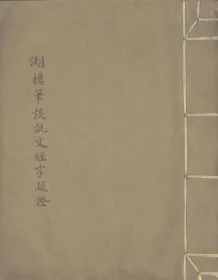 湖樓筆談說文經字疏證